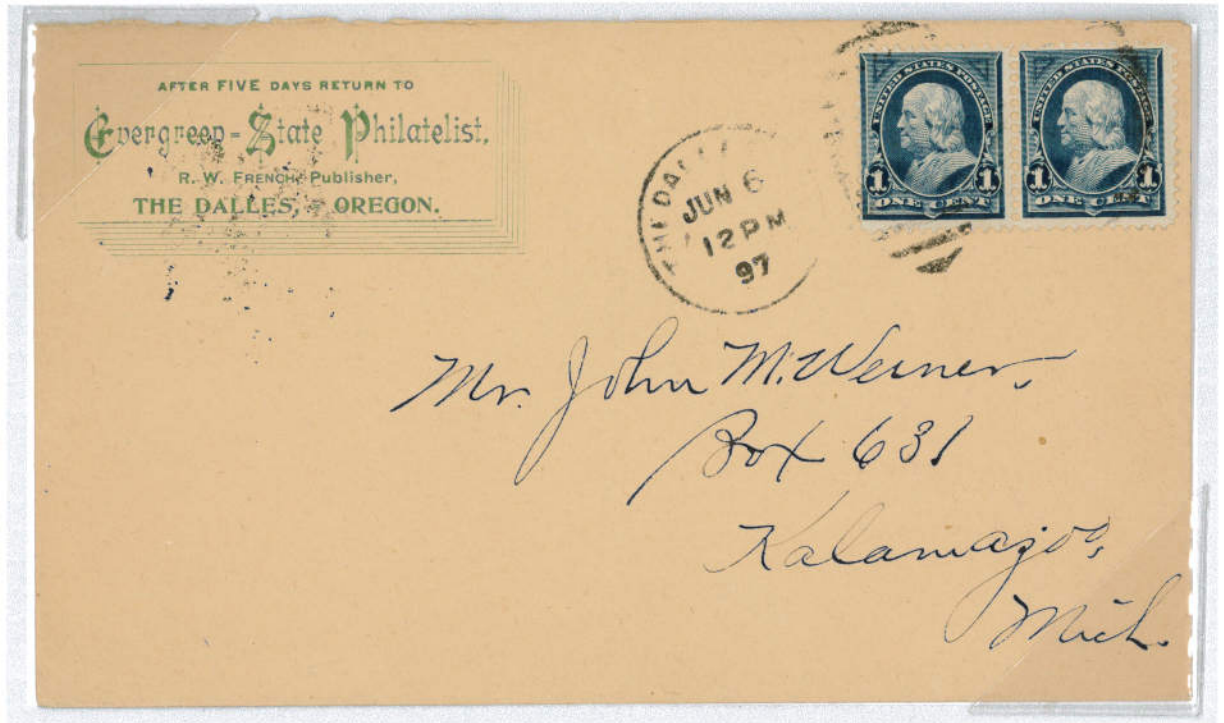 AFTER FIVE DAYS RETURN TO
Evergreen=State Philatelist,
R. W. FRENCH, Publisher,
THE DALLES, = OREGON.
THE DALL
JUN 6
12 PM
97
UNITED STATES POSTAGE
1 1
ONE CENT
UNITED STATES POSTAGE
1 1
ONE CENT
Mr. John M. Werner,
Box 631
Kalamazoo,
Mich.